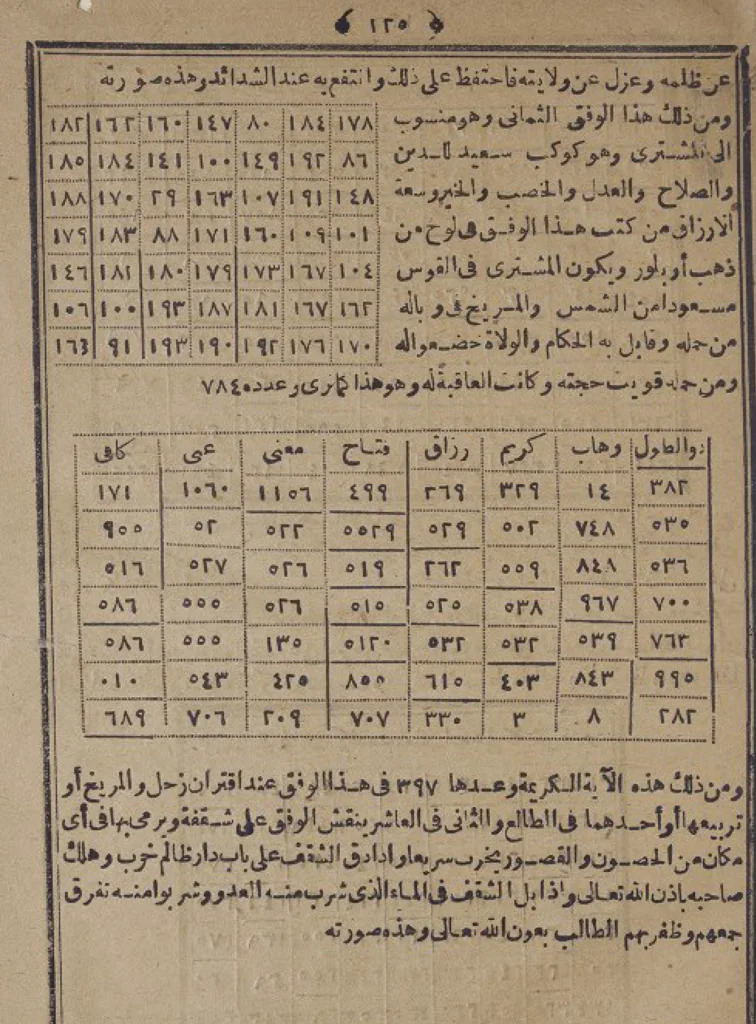 ١٢٥
عن ظلمه وعزل عن ولايته فاحتفظ على ذلك وانتفع به عند الشدائد وهذه صورته
ومن ذلك هذا الوفق الثمانى وهو منسوب
الى المشترى وهو كوكب سعيد للدين
والصلاح والعدل والخصب والخير وسعة
الارزاق من كتب هذا الوفق فى لوح من
ذهب أو بلور ويكون المشترى فى القوس
مسعودا من الشمس والمريخ فى وباله
من حمله وقابل به الحكام والولاة خضعواله
ومن حمله قويت حجته وكانت العاقبة له وهو هذا كماترى وعدده ٧٨٤
١٧٨ ١٨٤ ٨٠ ١٤٧ ١٦٠ ١٦٢ ١٨٢
٨٦ ١٩٢ ١٤٩ ١٠٠ ١٤١ ١٨٤ ١٨٥
١٤٨ ١٩١ ١٠٧ ١٦٣ ٢٩ ١٧٠ ١٨٨
١٠١ ١٠٩ ١٦٠ ١٧١ ٨٨ ١٨٣ ١٧٩
١٠٤ ١٦٧ ١٧٣ ١٧٩ ١٨٠ ١٨١ ١٤٦
١٦٢ ١٦٧ ١٨١ ١٨٧ ١٩٣ ١٠٠ ١٠٦
١٧٠ ١٧٦ ١٩٢ ١٩٠ ١٩٣ ٩١ ١٦٣
ذوالطول وهاب كريم رزاق فتاح مغنى غنى كافى
٣٨٢ ١٤ ٣٢٩ ٢٦٩ ٤٩٩ ١١٥٦ ١٠٦٠ ١٧١
٥٣٥ ٧٤٨ ٥٠٢ ٥٢٩ ٥٥٢٩ ٥٢٢ ٥٢ ٩٥٥
٥٣٦ ٨٤٨ ٥٥٩ ٢٦٢ ٥١٩ ٥٢٦ ٥٢٧ ٥١٦
٧٠٠ ٩٦٧ ٥٣٨ ٥٢٥ ٥١٥ ٥٢٦ ٥٥٥ ٥٨٦
٧٦٣ ٥٣٩ ٥٣٢ ٥٣٢ ٥١٢٠ ١٣٥ ٥٥٥ ٥٨٦
٩٩٥ ٨٤٣ ٤٠٣ ٦١٥ ٨٥٥ ٤٢٥ ٥٤٣ ٠١٠
٢٨٢ ٨ ٣ ٣٣٠ ٧٠٧ ٢٠٩ ٧٠٦ ٦٨٩
ومن ذلك هذه الآية الكريمة وعدها ٣٩٧ فى هذا الوفق عند اقتران زحل والمريخ أو
تربيعها أو أحدهما فى الطالع والثانى فى العاشر ينقش الوفق على شقفة ويرمى بها فى أى
مكان من الحصون والقصور يخرب سريعا واذا دق الشقف على باب دار ظالم خرب وهلك
صاحبه باذن الله تعالى واذا بل الشقف فى الماء الذى شرب منه العدو وشربوا منه تفرق
جمعهم وظفر بهم الطالب بعون الله تعالى وهذه صورته